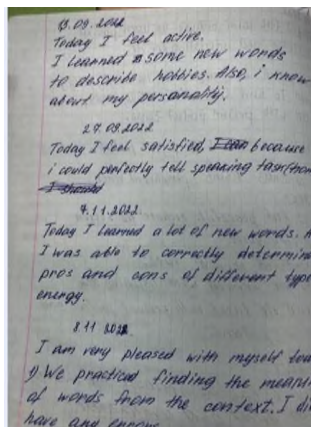 13.09.2022
Today I feel active.
I learned some new words
to describe hobbies. Also, i know
about my personality.
27.09.2022
Today I feel satisfied, I can because
i could perfectly tell speaking task
I should
7.11.2022
Today I learned a lot of new words.
I was able to correctly determine
pros and cons of different type
energy.
8.11 2022
I am very pleased with myself
1) We practiced finding the
of words from the context. I
have and